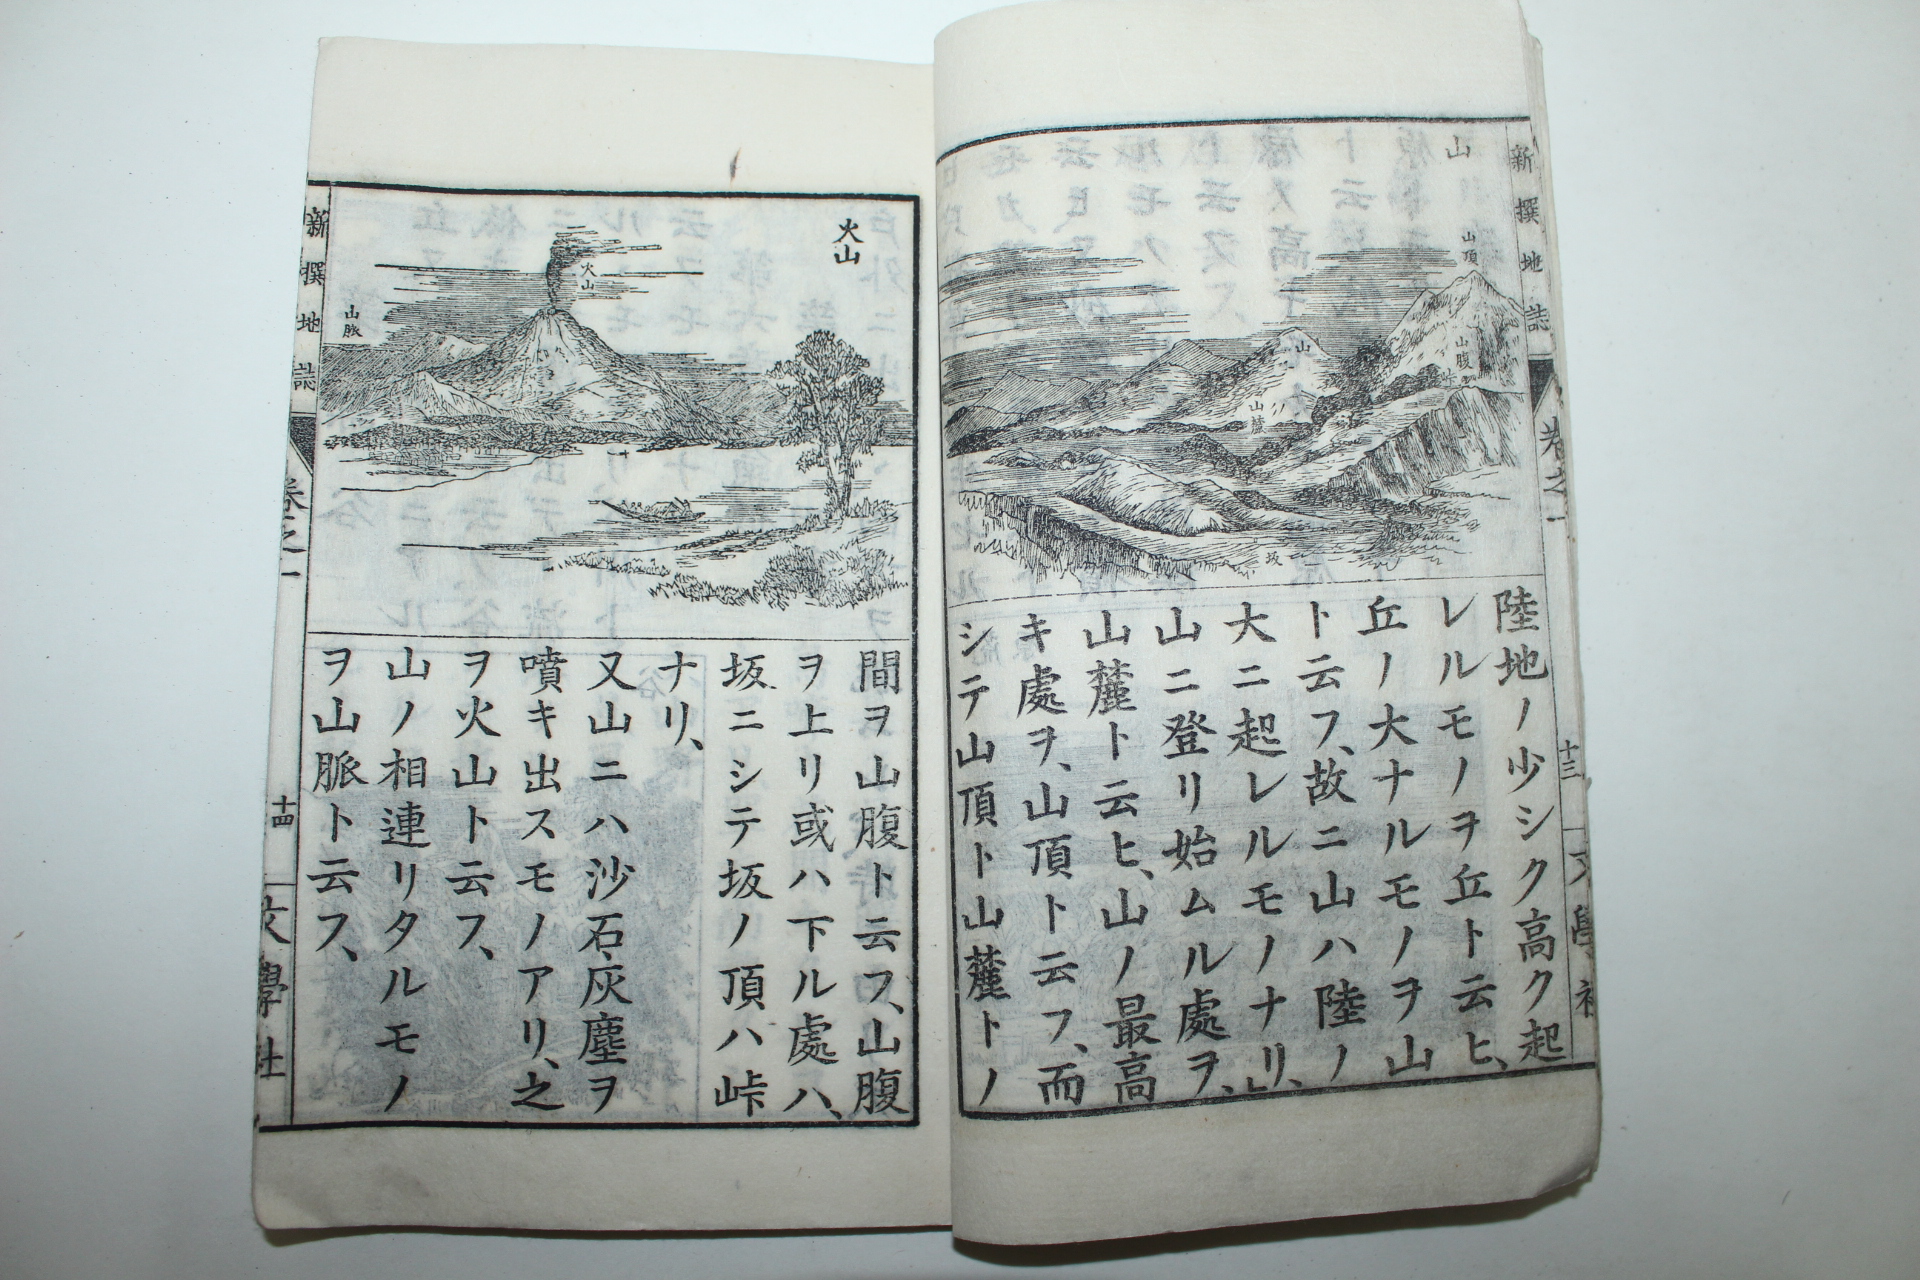 新撰地誌
卷之一
十三
文學社
山
山頂
山腹
山
山麓
坂
陸地ノ少シク高ク起
レルモノヲ丘ト云ヒ、
丘ノ大ナルモノヲ山
ト云フ、故ニ山ハ陸ノ
大ニ起レルモノナリ、
山ニ登リ始ムル處ヲ、
山麓ト云ヒ、山ノ最高
キ處ヲ、山頂ト云フ、而
シテ山頂ト山麓トノ
火山
火山
山脈
間ヲ山腹ト云フ、山腹
ヲ上リ或ハ下ル處ハ、
坂ニシテ坂ノ頂ハ峠
ナリ、
又山ニハ沙石、灰塵ヲ
噴キ出スモノアリ、之
ヲ火山ト云フ、
山ノ相連リタルモノ
ヲ山脈ト云フ、
新撰地誌
卷之一
十四
文學社